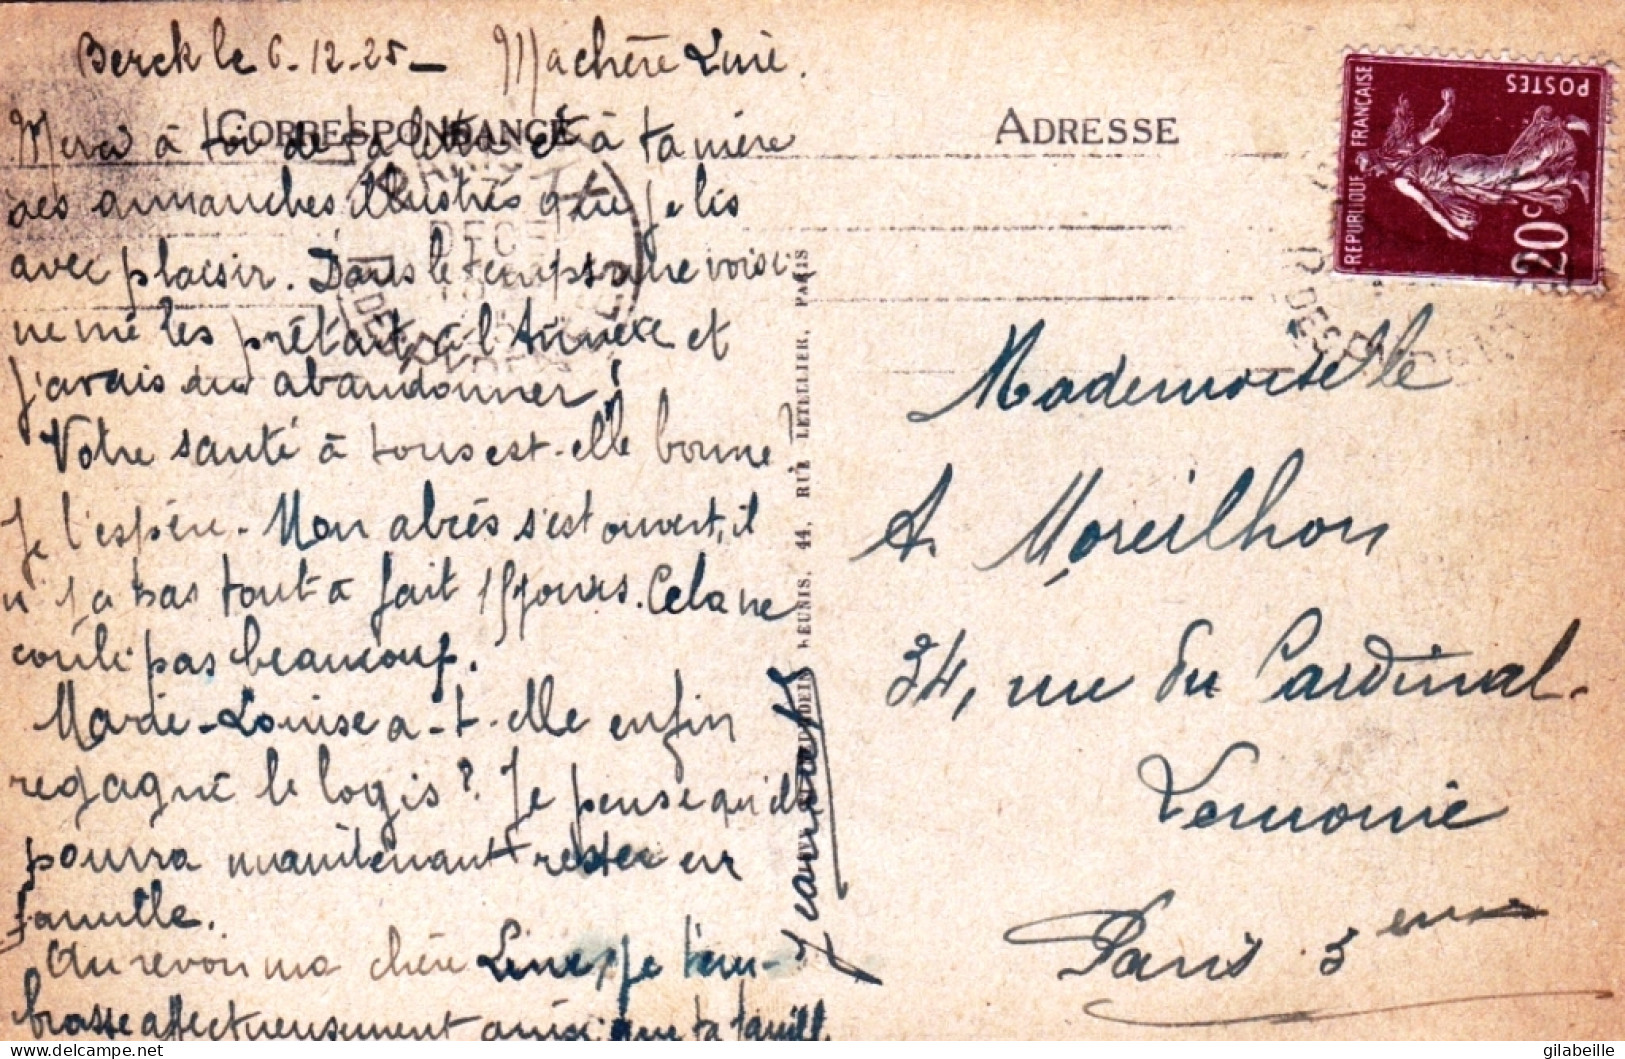 Berck le 6-12-25 — Ma chère Line.
CORRESPONDANCE
Merci à toi de ta lettre et à ta mère
des dimanches illustrés que je lis
avec plaisir. Dans le temps une voisi-
ne me les prêtait à l'Annexe et
j'avais dû abandonner!
Votre santé à tous est-elle bonne?
Je l'espère. Mon abcès s'est ouvert, il
n'y a pas tout à fait 15 jours. Cela ne
coule pas beaucoup.
Marie-Louise a-t-elle enfin
regagné le logis? Je pense qu'elle
pourra maintenant rester en
famille.
Au revoir ma chère Line, je t'em-
brasse affectueusement ainsi que ta famille
RUE LETELLIER, PARIS
44,
ADRESSE
POSTES
REPUBLIQUE FRANÇAISE
20c
Mademoiselle
A. Moreilhon
34, rue du Cardinal-
Lemoine
Paris 5eme
gilabeille